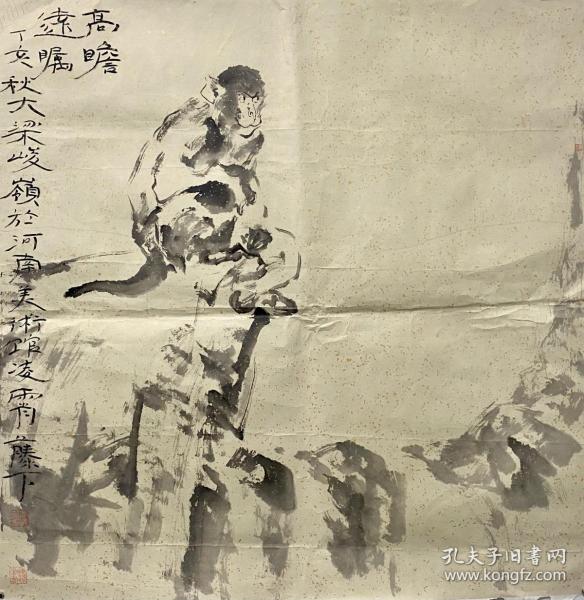 高瞻
遠矚
丁亥秋大梁峻嶺於河南美術館凌霄藤下
孔夫子旧书网
www.kongfz.com